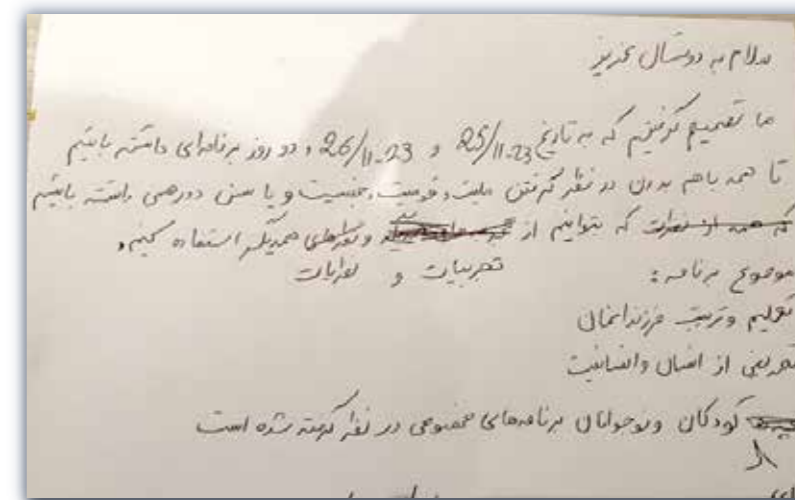 سلام به دوستان عزیز
ما تصمیم گرفتیم که به تاریخ 25/11-23 و 26/11-23، دو روز برنامه‌ای داشته باشیم
تا همه باهم بدون در نظر گرفتن ملیت، قومیت، جنسیت و یا سنی دورهمی داشته باشیم
که همه از نظرات که بتوانیم از و نظرهای همدیگر استفاده کنیم،
تجربیات و نظریات
موضوع برنامه:
تعلیم و تربیت فرزندانمان
تعریفی از انسان و انسانیت
کودکان و نوجوانان برنامه‌های مخصوصی در نظر گرفته شده است